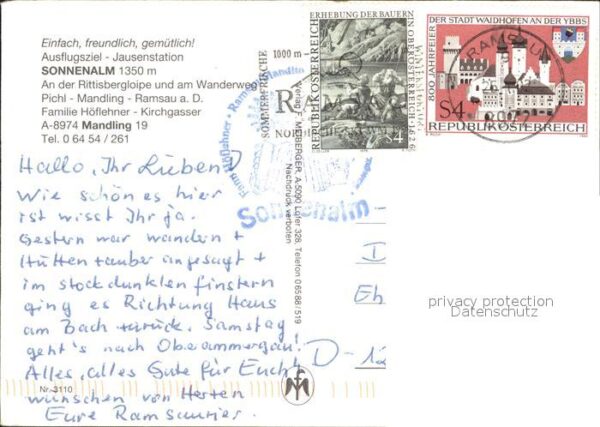 Einfach, freundlich, gemütlich!
Ausflugsziel - Jausenstation
SONNENALM 1350 m
An der Rittisbergloipe und am Wanderweg
Pichl - Mandling - Ramsau a. D.
Familie Höflehner - Kirchgasser
A-8974 Mandling 19
Tel. 0 64 54 / 261
Hallo, Ihr Lieben!
Wie schön es hier
ist wisst Ihr ja.
Gestern war wandern +
Hüttenzauber angesagt +
im stockdunklen finstern
ging es Richtung Haus
am Bach zurück. Samstag
geht's nach Oberammergau!
Alles, alles Gute für Euch
wünschen von Herzen
Eure Ramsauries.
Nr. 3110
SOMMERFRISCHE
1000 m
Verlag F. MIEBERGER, A-5090 Lofer 328, Telefon 06588/519
Nachdruck verboten
Fam. Höflehner · Ramsau Mandling
Sonnenalm
ERHEBUNG DER BAUERN
IN OBERÖSTERREICH 1626
REPUBLIK ÖSTERREICH
S 4
800 JAHRFEIER DER STADT WAIDHOFEN AN DER YBBS
S4
REPUBLIK ÖSTERREICH
RAMSAU
D
Eh
D-12
privacy protection
Datenschutz